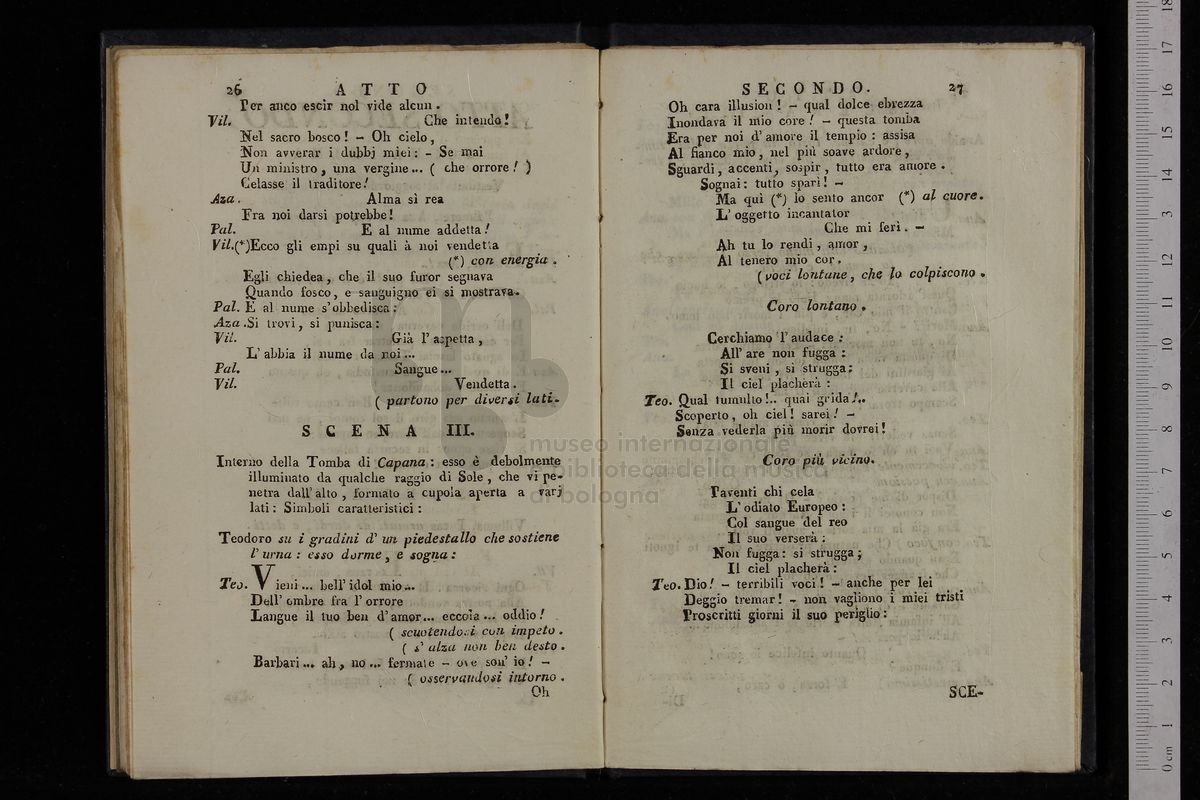 26 ATTO
Per anco escir nol vide alcun.
Vil. Che intendo!
Nel sacro bosco! - Oh cielo,
Non avverar i dubbj miei: - Se mai
Un ministro, una vergine... ( che orrore! )
Celasse il traditore!
Aza. Alma sì rea
Fra noi darsi potrebbe!
Pal. E al nume addetta!
Vil.(*)Ecco gli empi su quali à noi vendetta
(*) con energia.
Egli chiedea, che il suo furor segnava
Quando fosco, e sanguigno ei si mostrava.
Pal. E al nume s'obbedisca:
Aza.Si trovi, si punisca:
Vil. Già l'aspetta,
L'abbia il nume da noi...
Pal. Sangue...
Vil. Vendetta.
( partono per diversi lati.
SCENA III.
Interno della Tomba di Capana: esso è debolmente
illuminato da qualche raggio di Sole, che vi pe-
netra dall'alto, formato a cupola aperta a varj
lati: Simboli caratteristici:
Teodoro su i gradini d' un piedestallo che sostiene
l'urna: esso dorme, e sogna:
Teo. Vieni... bell'idol mio...
Dell'ombre fra l'orrore
Langue il tuo ben d'amor... eccola... oddio!
( scuotendosi con impeto.
( s'alza non ben desto.
Barbari... ah, no... fermate - ove son'io! -
( osservandosi intorno.
Oh
SECONDO. 27
Oh cara illusion! - qual dolce ebrezza
Inondava il mio core! - questa tomba
Era per noi d'amore il tempio: assisa
Al fianco mio, nel più soave ardore,
Sguardi, accenti, sospir, tutto era amore.
Sognai: tutto sparì! -
Ma quì (*) lo sento ancor (*) al cuore.
L'oggetto incantator
Che mi ferì. -
Ah tu lo rendi, amor,
Al tenero mio cor.
(voci lontane, che lo colpiscono.
Coro lontano.
Cerchiamo l'audace:
All'are non fugga:
Si sveni, si strugga:
Il ciel placherà:
Teo. Qual tumulto!.. quai grida!..
Scoperto, oh ciel! sarei! -
Senza vederla più morir dovrei!
Coro più vicino.
Paventi chi cela
L'odiato Europeo:
Col sangue del reo
Il suo verserà:
Non fugga: si strugga;
Il ciel placherà:
Teo.Dio! - terribili voci! - anche per lei
Deggio tremar! - non vagliono i miei tristi
Proscritti giorni il suo periglio:
SCE-
museo internazionale
e biblioteca della musica
di bologna
0 cm 1 2 3 4 5 6 7 8 9 10 11 12 13 14 15 16 17 18